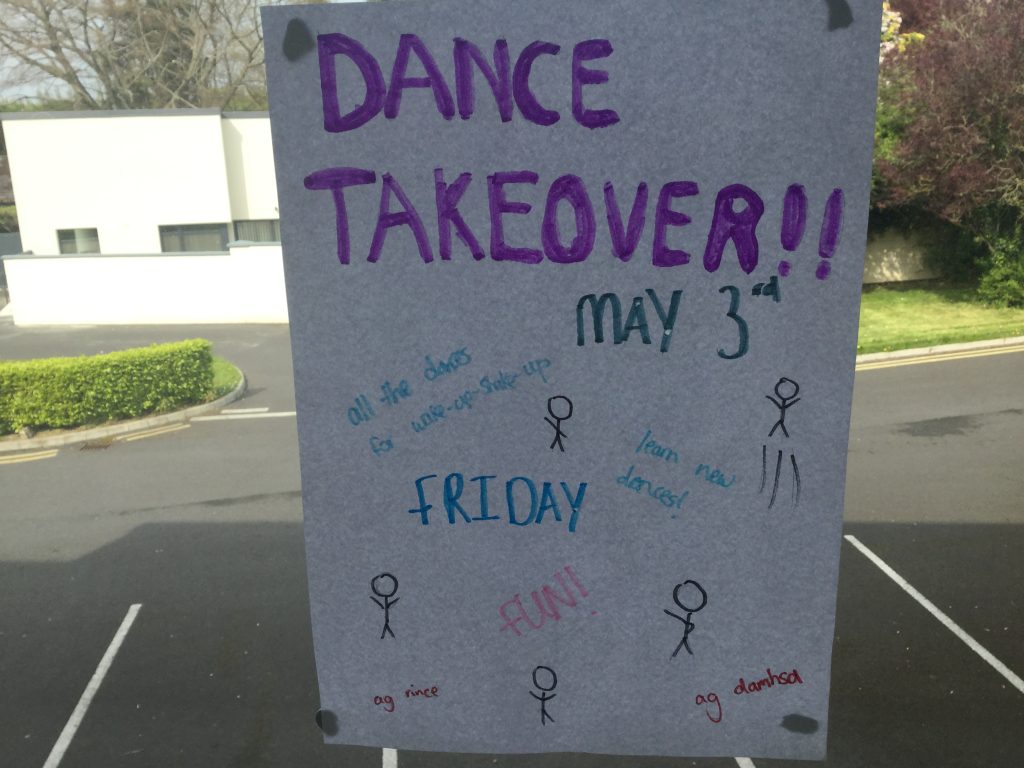 DANCE
TAKEOVER!!
MAY 3rd
all the dances
for wake-up-shake-up
learn new
dances!
FRIDAY
FUN!!
ag rince
ag damhsa